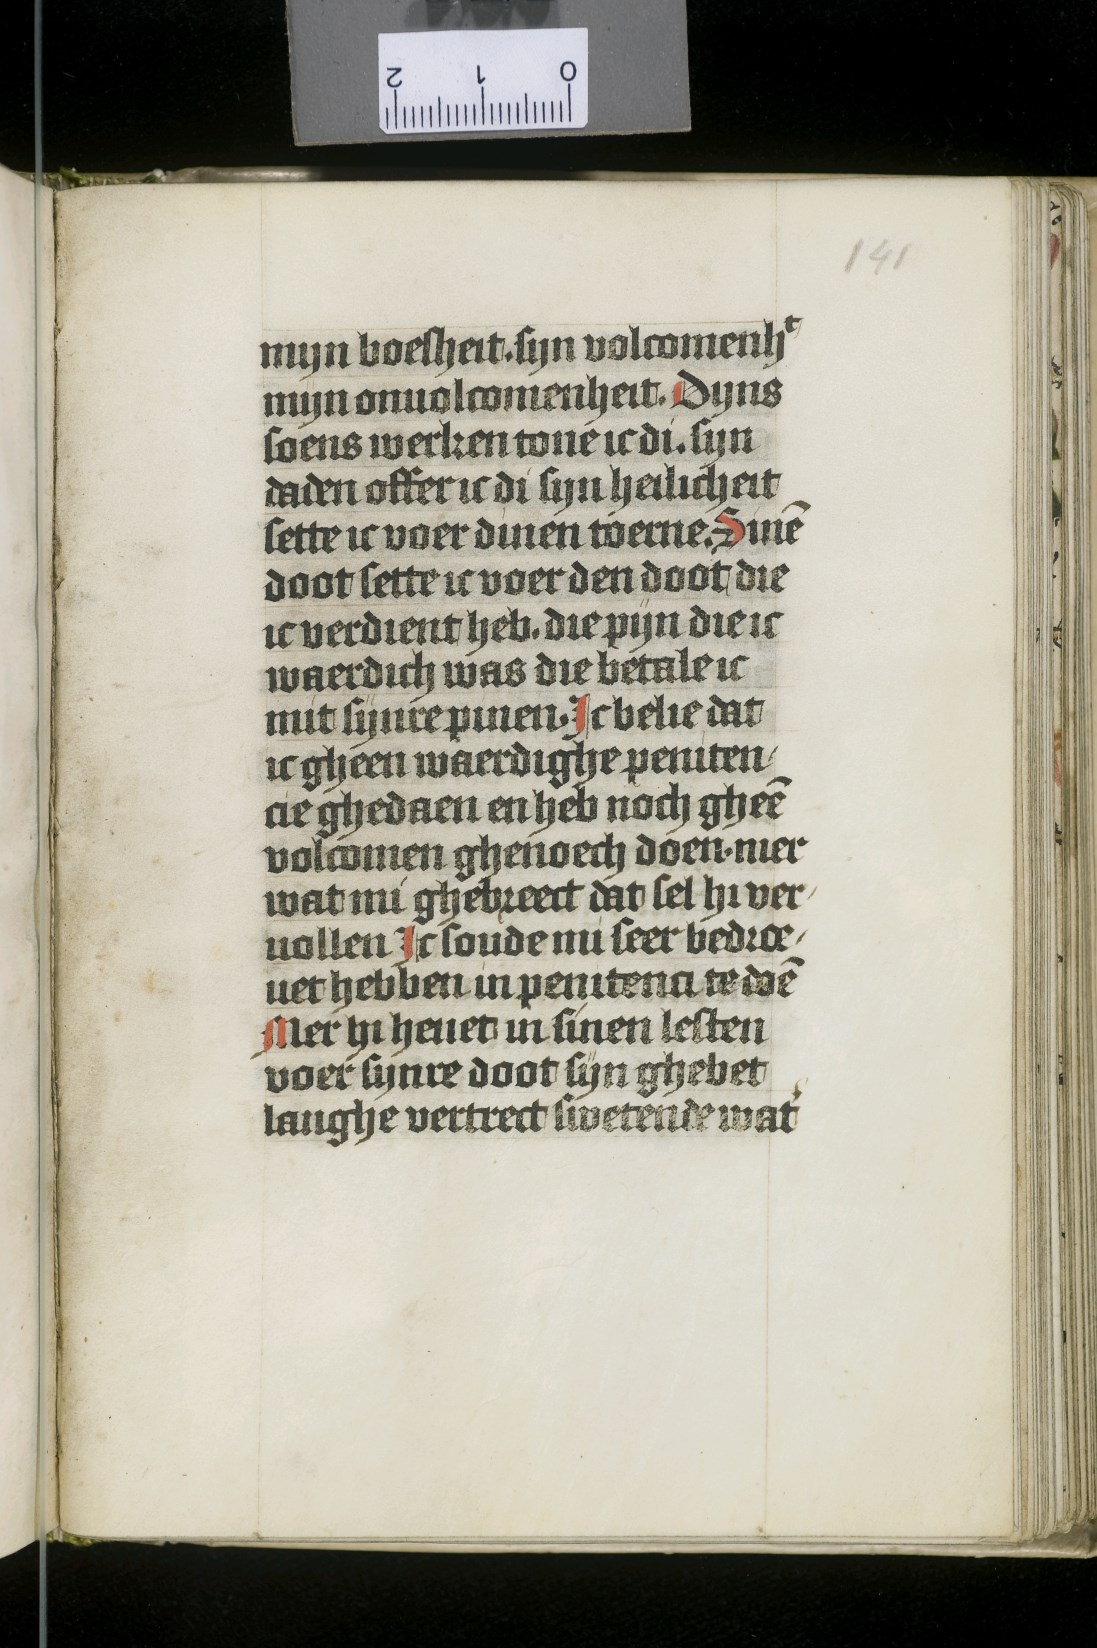 2 1 0
141
mijn boesheit. sijn volcomenhᵗ
mijn onuolcomenheit. Dijns
soens werken tone ic di. sijn
daden offer ic di sijn heilicheit
sette ic voer dinen toerne. Sinē
doot sette ic voer den doot die
ic verdient heb. die pijn die ic
waerdich was die betale ic
mit sijnre pinen. Ic belie dat
ic gheen waerdighe peniten/
cie ghedaen en heb noch gheē
volcomen ghenoech doen. mer
wat mi ghebreect dat sel hi ver/
uollen Ic soude mi seer bedroe/
uet hebben in penitenci te doē
Mer hi heuet in sinen lesten
voer sijnre doot sijn ghebet
langhe vertrect swetende wat'